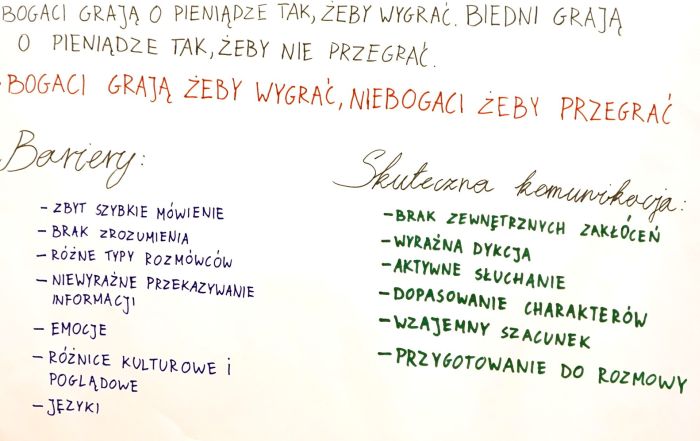 BOGACI GRAJĄ O PIENIĄDZE TAK, ŻEBY WYGRAĆ. BIEDNI GRAJĄ
O PIENIĄDZE TAK, ŻEBY NIE PRZEGRAĆ.
BOGACI GRAJĄ ŻEBY WYGRAĆ, NIEBOGACI ŻEBY PRZEGRAĆ
Bariery:
- ZBYT SZYBKIE MÓWIENIE
- BRAK ZROZUMIENIA
- RÓŻNE TYPY ROZMÓWCÓW
- NIEWYRAŹNE PRZEKAZYWANIE
INFORMACJI
- EMOCJE
- RÓŻNICE KULTUROWE i
POGLĄDOWE
- JĘZYKI
Skuteczna komunikacja:
- BRAK ZEWNĘTRZNYCH ZAKŁÓCEŃ
- WYRAŹNA DYKCJA
- AKTYWNE SŁUCHANIE
- DOPASOWANIE CHARAKTERÓW
- WZAJEMNY SZACUNEK
- PRZYGOTOWANIE DO ROZMOWY